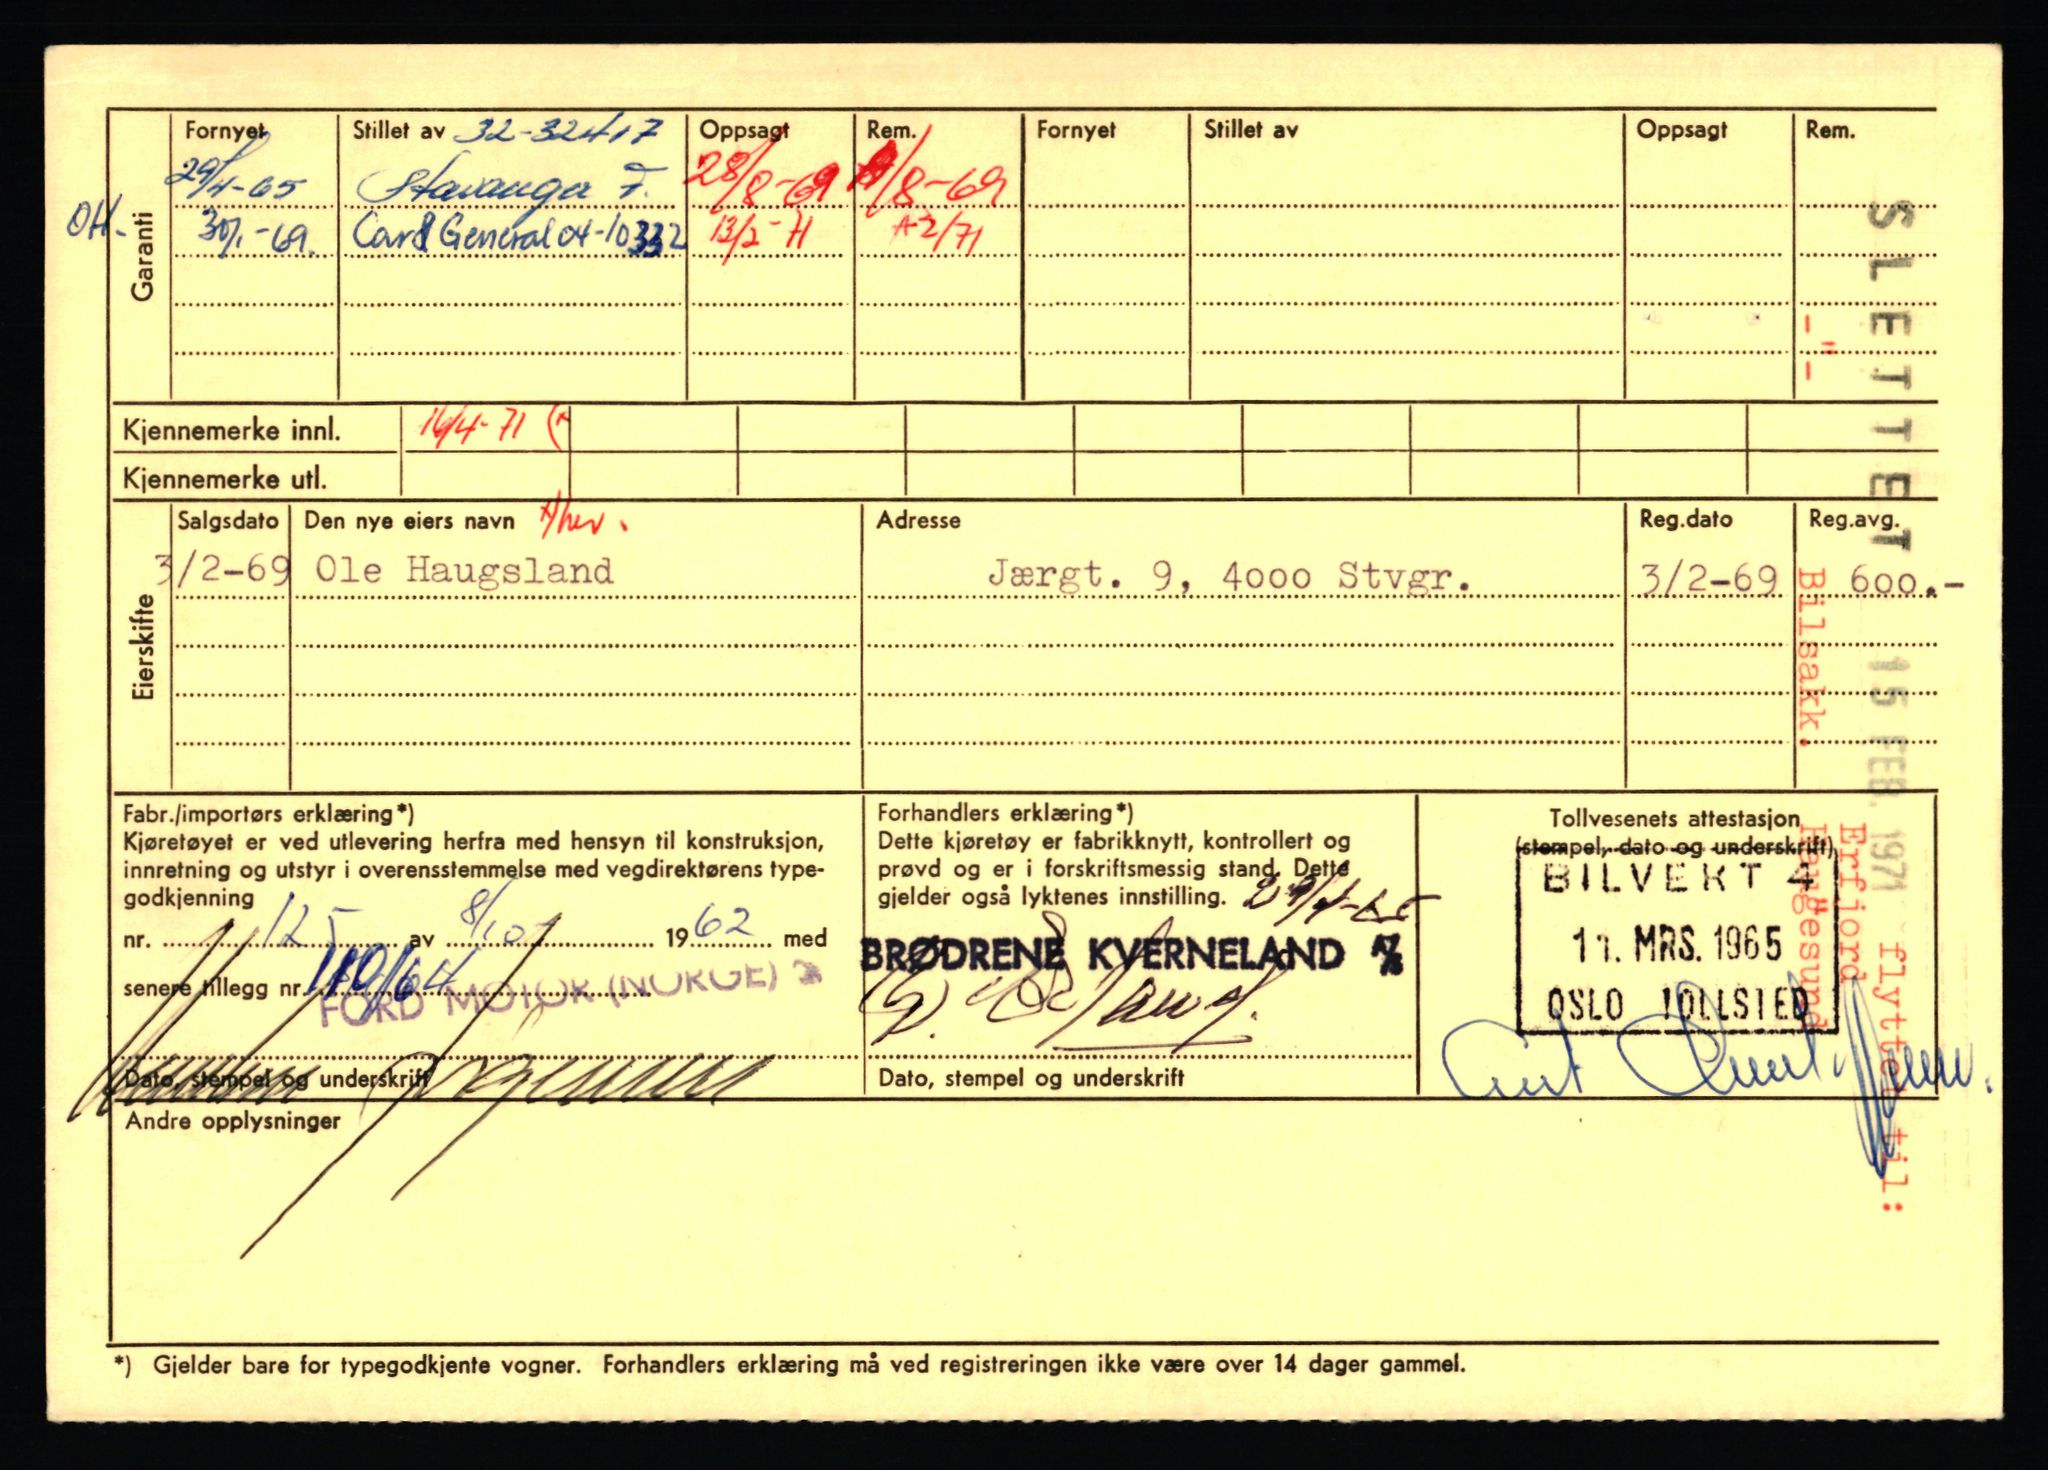 Fornyet Stillet av 32-32417 Oppsagt Rem. Fornyet Stillet av Oppsagt Rem.
29/4-65 Stavanger F. 28/8-69 /8-69
OH. 30/1-69. Car & General 04-10332 13/2-71 A2/71
Garanti
Kjennemerke innl. 16/4-71
Kjennemerke utl.
Salgsdato Den nye eiers navn Adresse Reg.dato Reg.avg.
3/2-69 Ole Haugsland Jærgt. 9, 4000 Stvgr. 3/2-69 600.-
Eierskifte
Fabr./importørs erklæring*)
Kjøretøyet er ved utlevering herfra med hensyn til konstruksjon,
innretning og utstyr i overensstemmelse med vegdirektørens type-
godkjenning
nr. 125 av 8/10 1962 med
senere tillegg nr. 110/64
FORD MOTOR (NORGE)
Dato, stempel og underskrift
Forhandlers erklæring*)
Dette kjøretøy er fabrikknytt, kontrollert og
prøvd og er i forskriftsmessig stand. Dette
gjelder også lyktenes innstilling. 29/4-65
BRØDRENE KVERNELAND A/S
Dato, stempel og underskrift
Tollvesenets attestasjon
(stempel, dato og underskrift)
BILVERKT 4
11. MRS. 1965
OSLO TOLLSTED
Andre opplysninger
*) Gjelder bare for typegodkjente vogner. Forhandlers erklæring må ved registreringen ikke være over 14 dager gammel.
SLETTET 15 FEB. 1971 flyttet til:
Erfjord
-"- Bilsakk. Haugesund